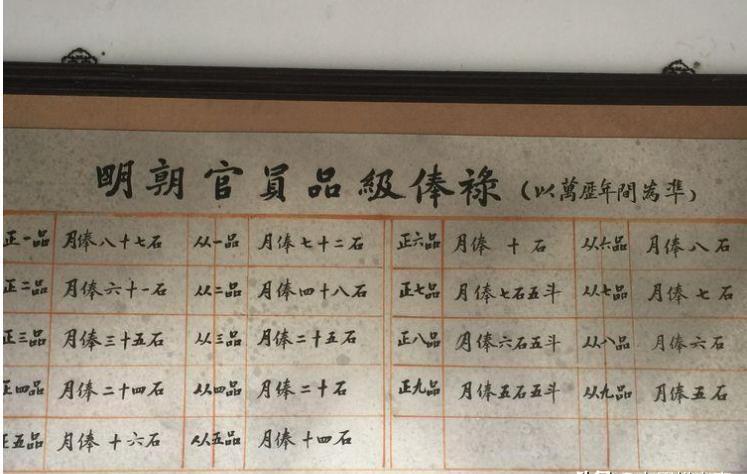 明朝官員品級俸祿(以萬歷年間為準)
正一品 月俸八十七石 从一品 月俸七十二石 正六品 月俸 十石 从六品 月俸八石
正二品 月俸六十一石 从二品 月俸四十八石 正七品 月俸七石五斗 从七品 月俸七石
正三品 月俸三十五石 从三品 月俸二十五石 正八品 月俸六石五斗 从八品 月俸六石
正四品 月俸二十四石 从四品 月俸二十石 正九品 月俸五石五斗 从九品 月俸五石
正五品 月俸十六石 从五品 月俸十四石